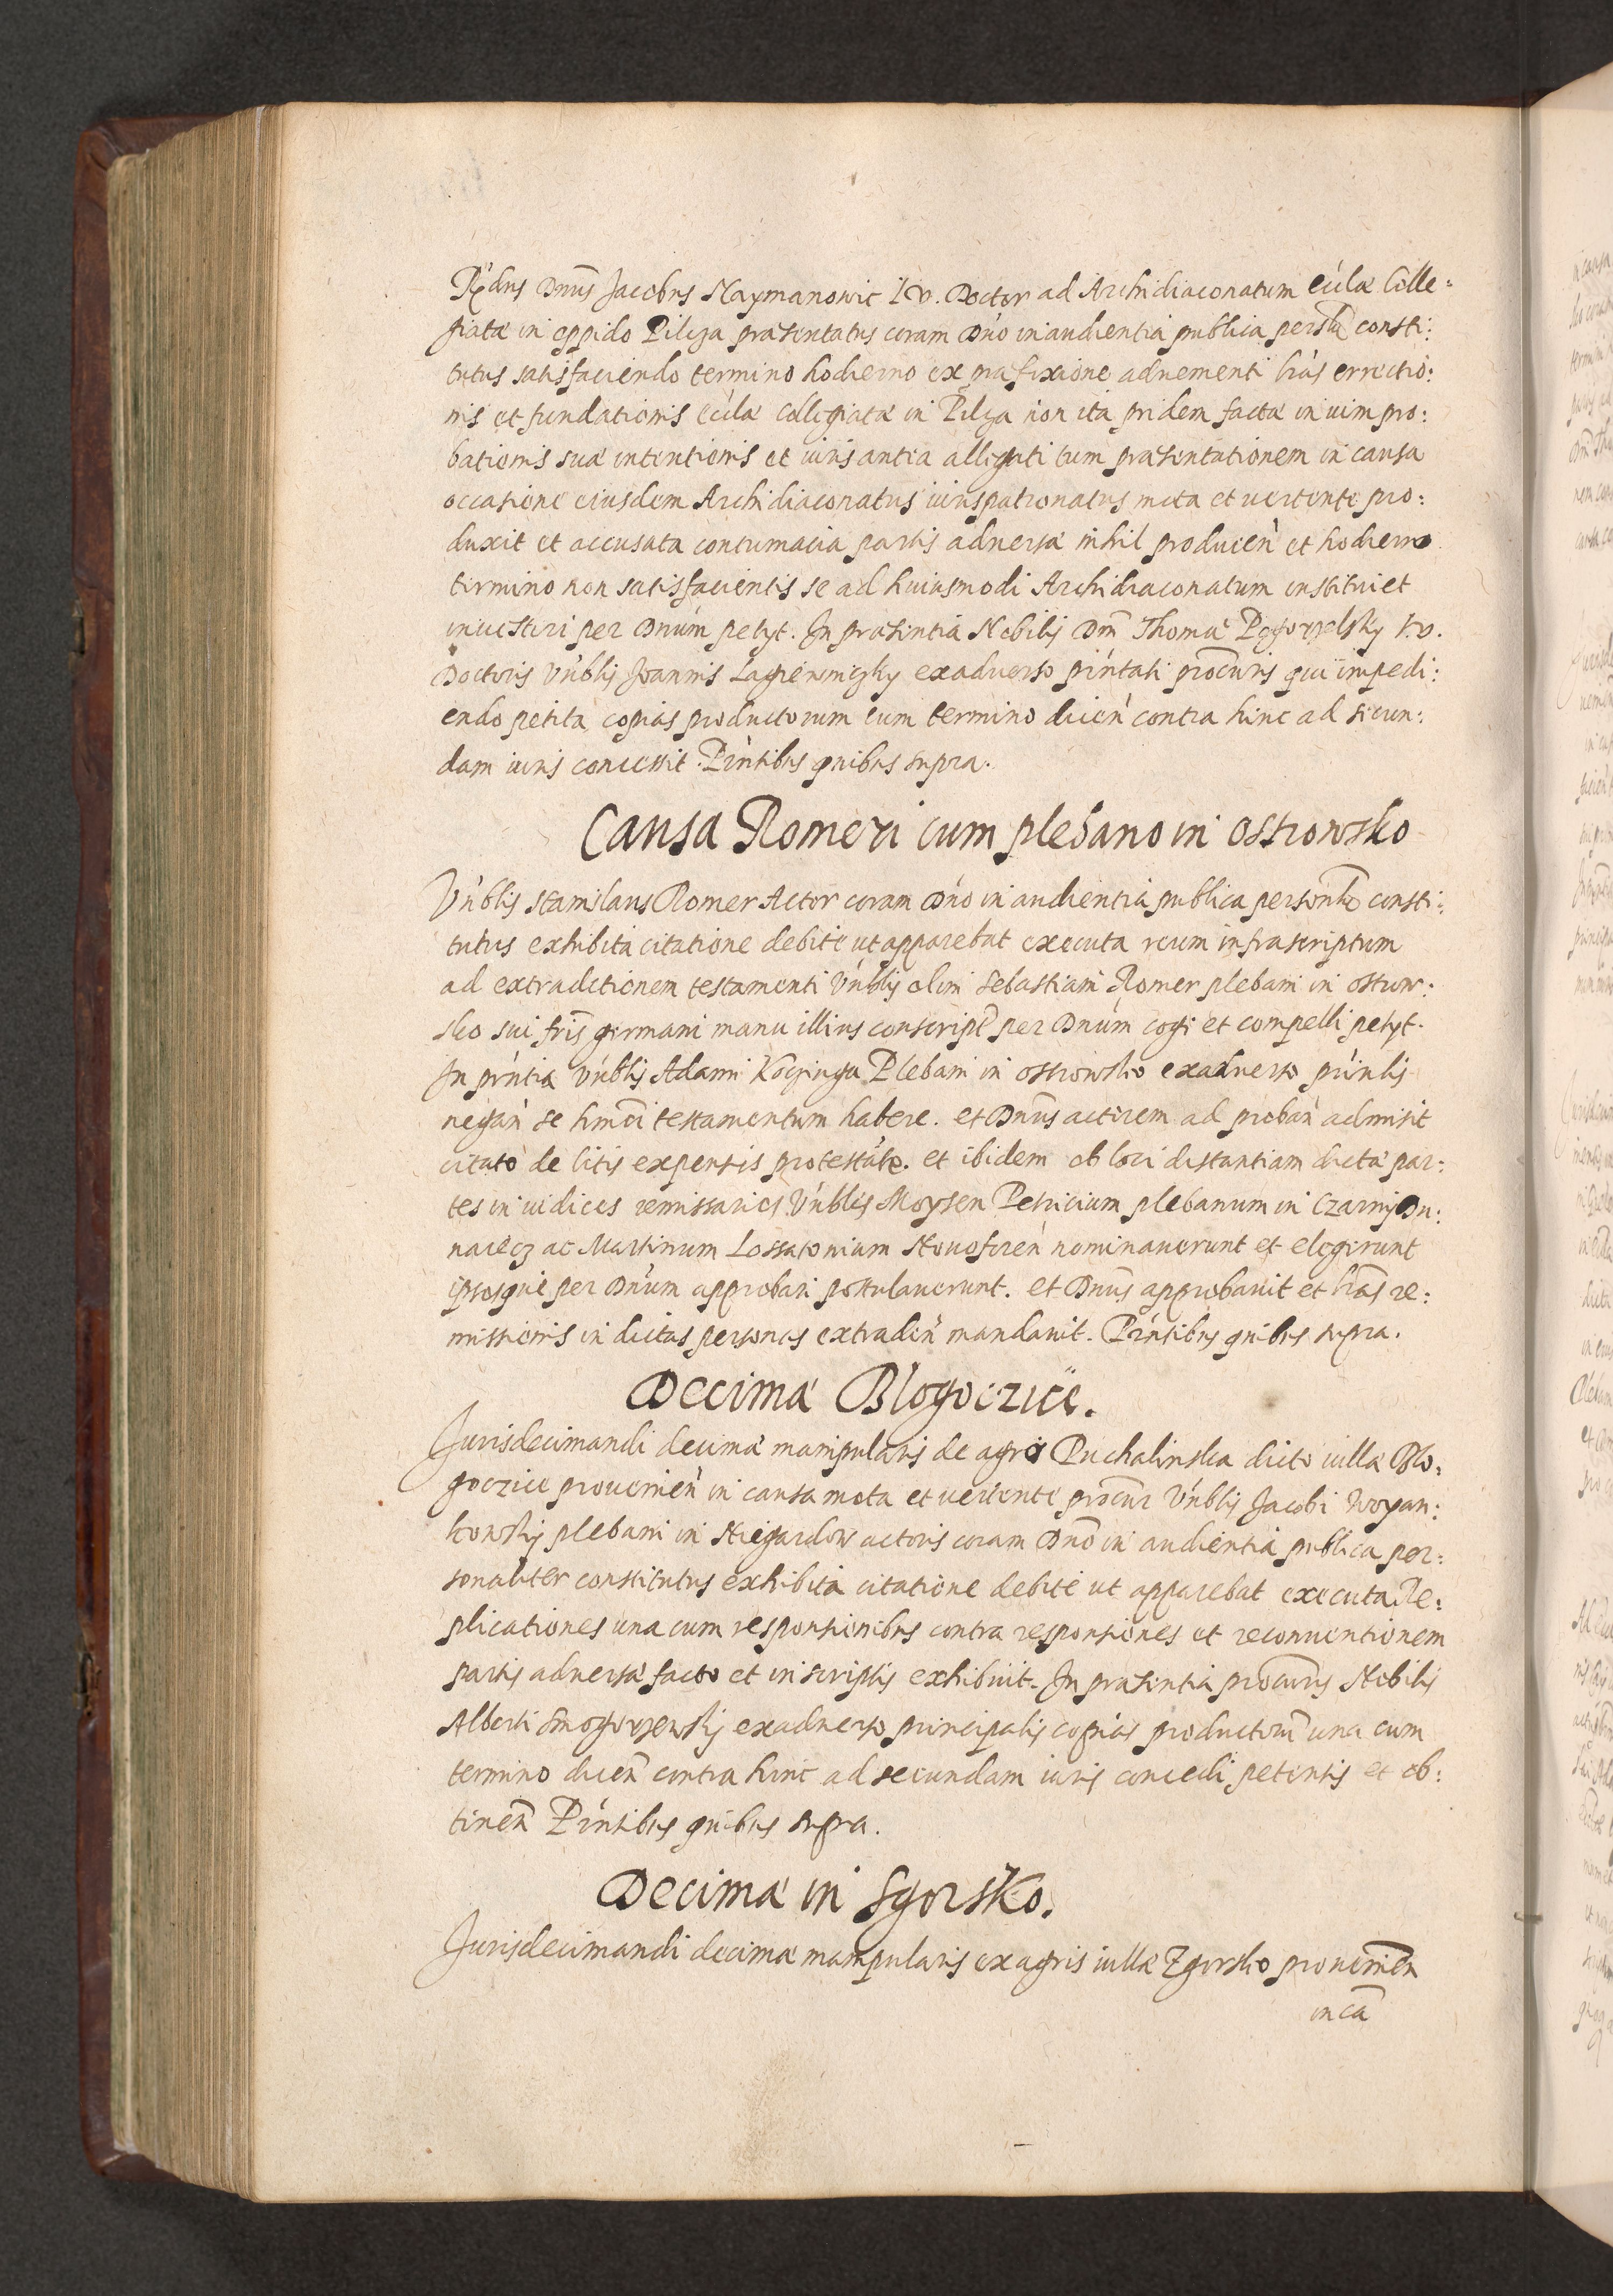 Rndus Dnus Jacobus Naymanowic I.V. Doctor ad Archidiaconatum Ecclae Colle:
giatae in oppido Pilcza praesentatus coram Dno in audientia publica personlr consti:
tutus satisfaciendo termino hodierno ex praefixione advenienti lras errectio:
nis et fundationis ecclae Collegiatae in Pilcza non ita pridem factae in vim pro:
bationis suae intentionis et iuris antea allegati tum praesentationem in causa
occasione eiusdem Archidiaconatus iurispatronatus mota et vertente pro:
duxit et accusata contumacia partis adversae nihil producen et hodierno
termino non satisfacientis se ad huiusmodi Archidiaconatum institui et
investiri per Dnum petyt. In praesentia Nobilis Dni Thomae Pogorzelsky I.V.
Doctoris Vnblis Joannis Lagiewniczky exadverso pnntati procuris qui impedi:
endo petita copias productorum cum termino dicen contra hinc ad secun:
dam iuris concessit. Pntibus quibus supra.
Causa Romeri cum plebano in Ostrowsko
Vnblis Stanislaus Romer Actor coram Dno in audientia publica personlr consti:
tutus exhibita citatione debite ut apparebat executa reum infrascriptum
ad extraditionem testamenti Vnblis olim Sebastiani Romer plebani in Ostrow:
sko sui fris germani manu illius conscript per Dnum cogi et compelli petyt.
In pntia Vnblis Adami Plebani in Ostrowsko exadverso prinlis
negan se hmoi testamentum habere. et Dnus actorem ad proban admisit
citato de litis expensis protestate. et ibidem ob loci distantiam dictae par:
tes in iudices remissarios Vnbles Moysen Petricium plebanum in Czarny Du:
naiecz ac Martinum Lossatonium Novoforen nominaverunt et elegerunt
ipsosque per Dnum approbari postulaverunt. et Dnus approbavit et lras re:
missionis in dictas personas extraden mandavit. Pntibus quibus supra.
Decimae Blogoczice.
Jurisdecimandi decimae manipularis de agro Puchalinska dicto villae Blo:
goczice provenien in causa mota et vertente procur Vnblis Jacobi Woyan:
kowsky plebani in Niegardow actoris coram Dno in audientia publica per:
sonaliter constitutus exhibita citatione debite ut apparebat executa Re:
plicationes una cum responsionibus contra responsiones et reconventionem
partis adversae facto et in scriptis exhibuit. In praesentia procuris Nobilis
Alberti Smogorzewsky exadverso principalis copias productorum una cum
termino dicen contra hinc ad secundam iuris concedi petentis et ob:
tinen Pntibus quibus supra.
Decimae in Sgorsko.
Jurisdecimandi decimae manipularis ex agris villae Zgorsko provenien
in ca